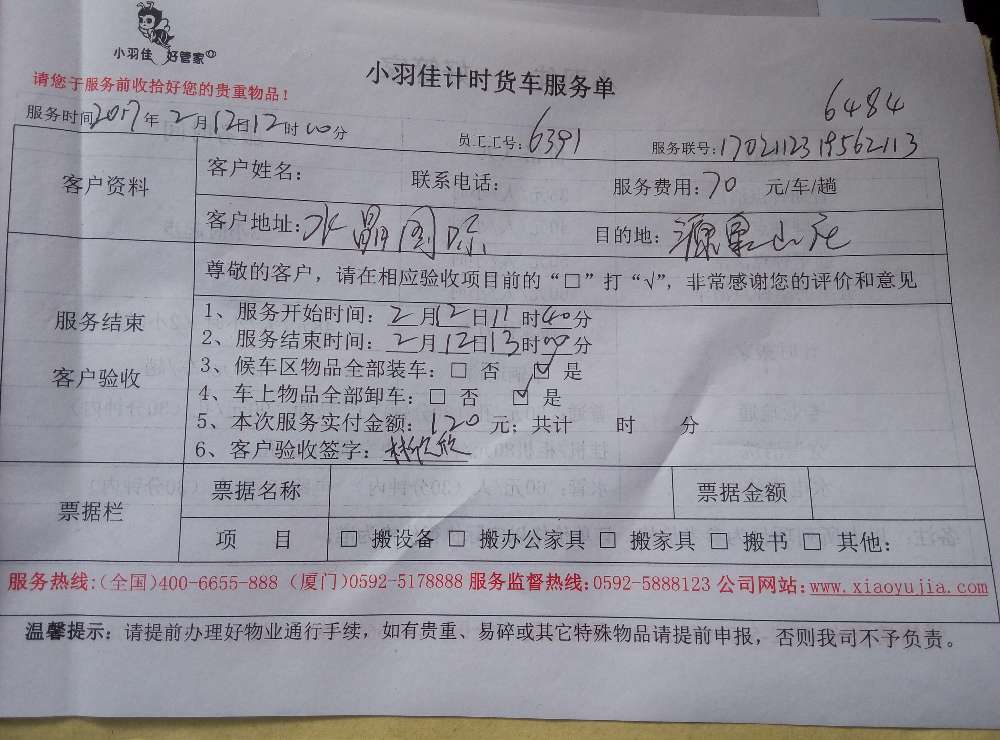 小羽佳 好管家
小羽佳计时货车服务单
请您于服务前收拾好您的贵重物品！
6484
服务时间2017年2月12日12时00分 员工工号：6391 服务联号：1702112319562113
客户资料
客户姓名： 联系电话： 服务费用：70 元/车/趟
客户地址：水晶国际 目的地：源泉山庄
服务结束
客户验收
尊敬的客户，请在相应验收项目前的“□”打“√”，非常感谢您的评价和意见
1、服务开始时间：2月12日11时40分
2、服务结束时间：2月12日13时00分
3、候车区物品全部装车：□ 否 ☑ 是
4、车上物品全部卸车：□ 否 ☑ 是
5、本次服务实付金额：120 元；共计 时 分
6、客户验收签字：
票据栏
票据名称 票据金额
项 目 □ 搬设备 □ 搬办公家具 □ 搬家具 □ 搬书 □ 其他：
服务热线：(全国)400-6655-888 (厦门)0592-5178888 服务监督热线：0592-5888123 公司网站：www.xiaoyujia.com
温馨提示：请提前办理好物业通行手续，如有贵重、易碎或其它特殊物品请提前申报，否则我司不予负责。